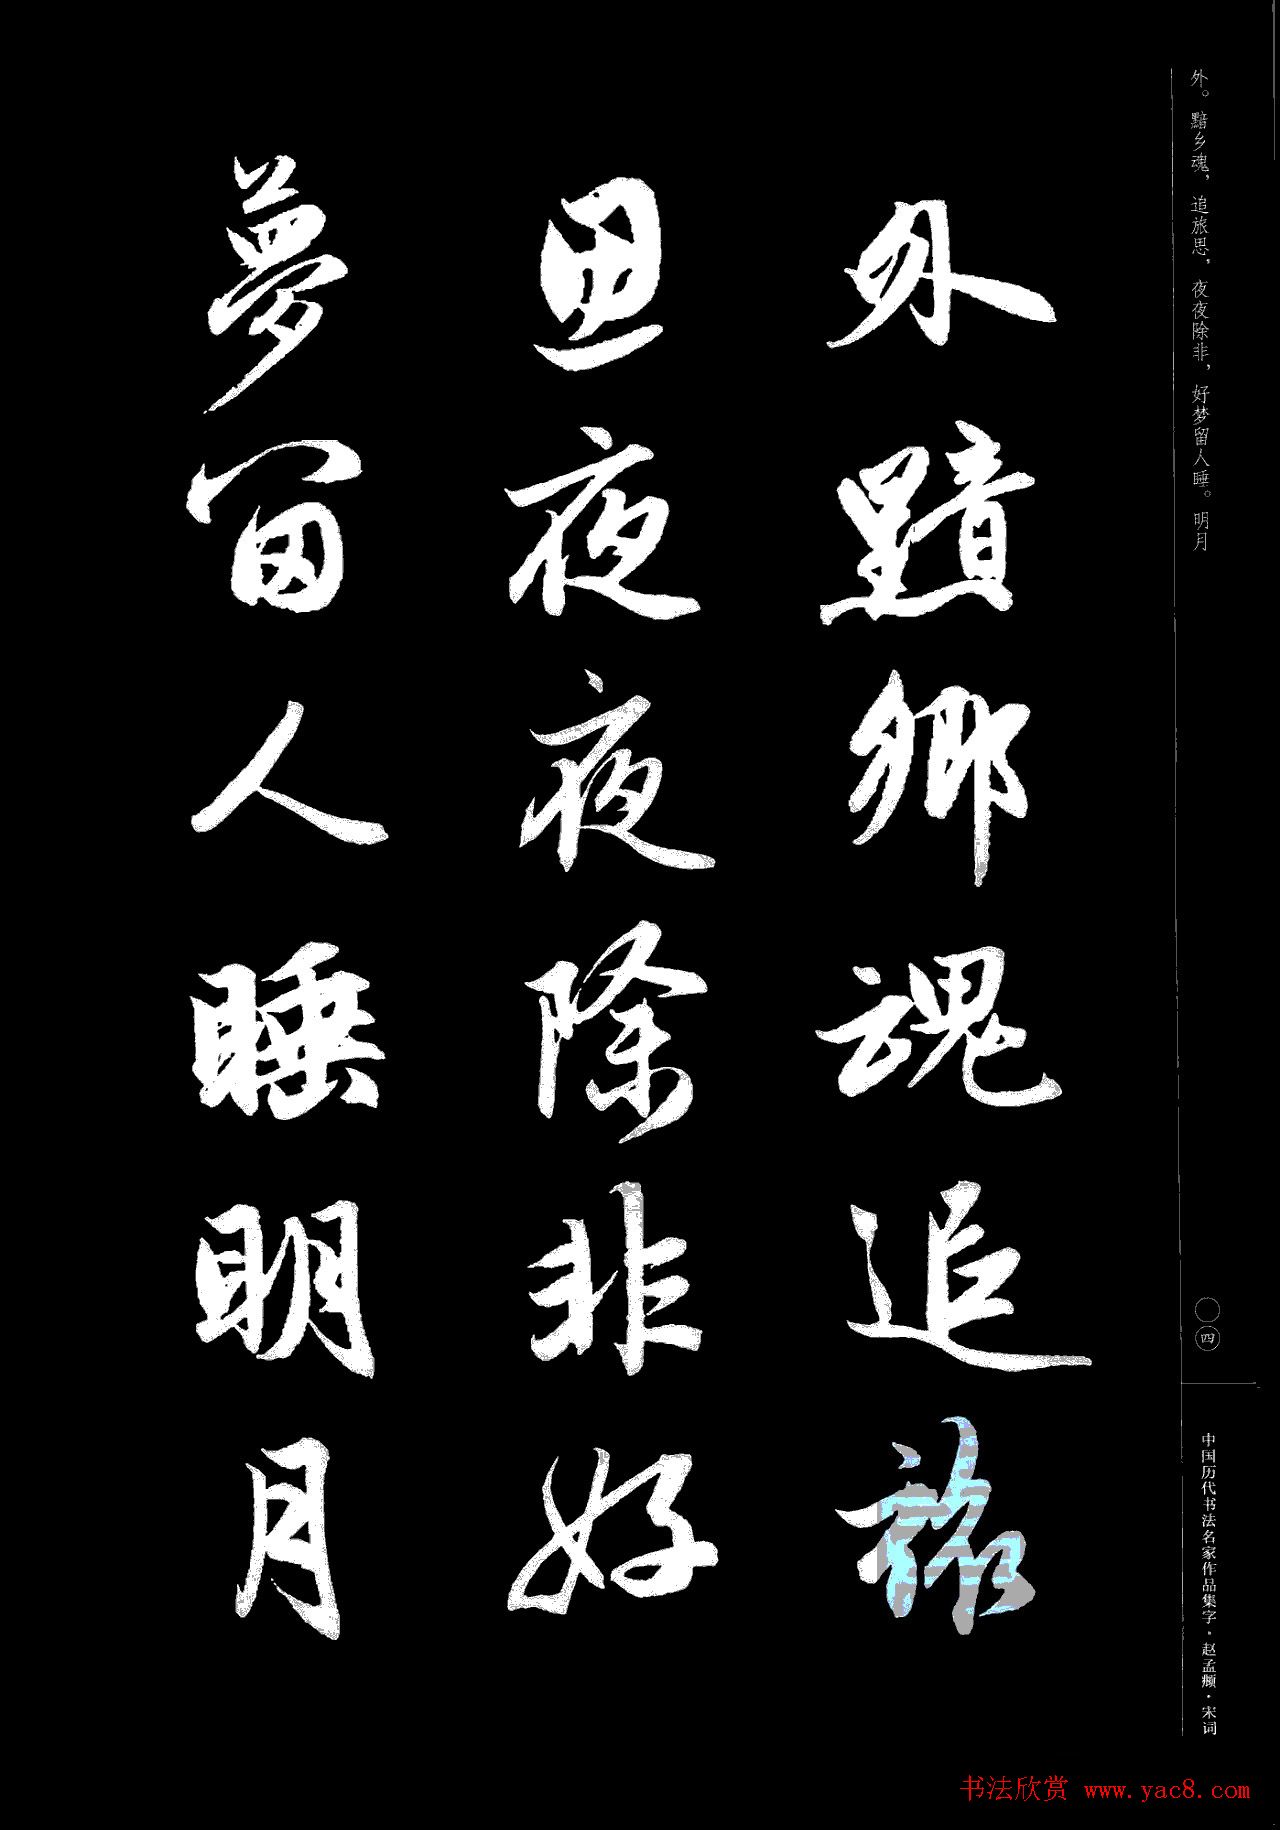 外。黯乡魂，追旅思，夜夜除非，好梦留人睡。明月
外黯鄉魂追旅
思夜夜除非好
夢留人睡明月
〇四
中国历代书法名家作品集字·赵孟頫·宋词
书法欣赏 www.yac8.com